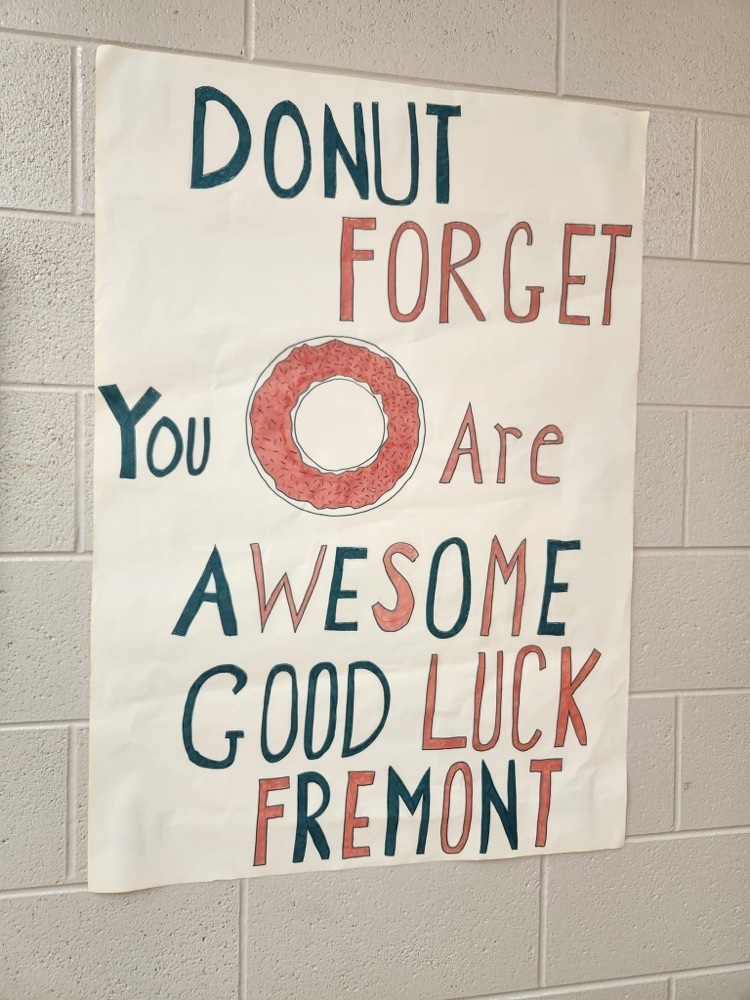 DONUT
FORGET
You Are
AWESOME
GOOD LUCK
FREMONT